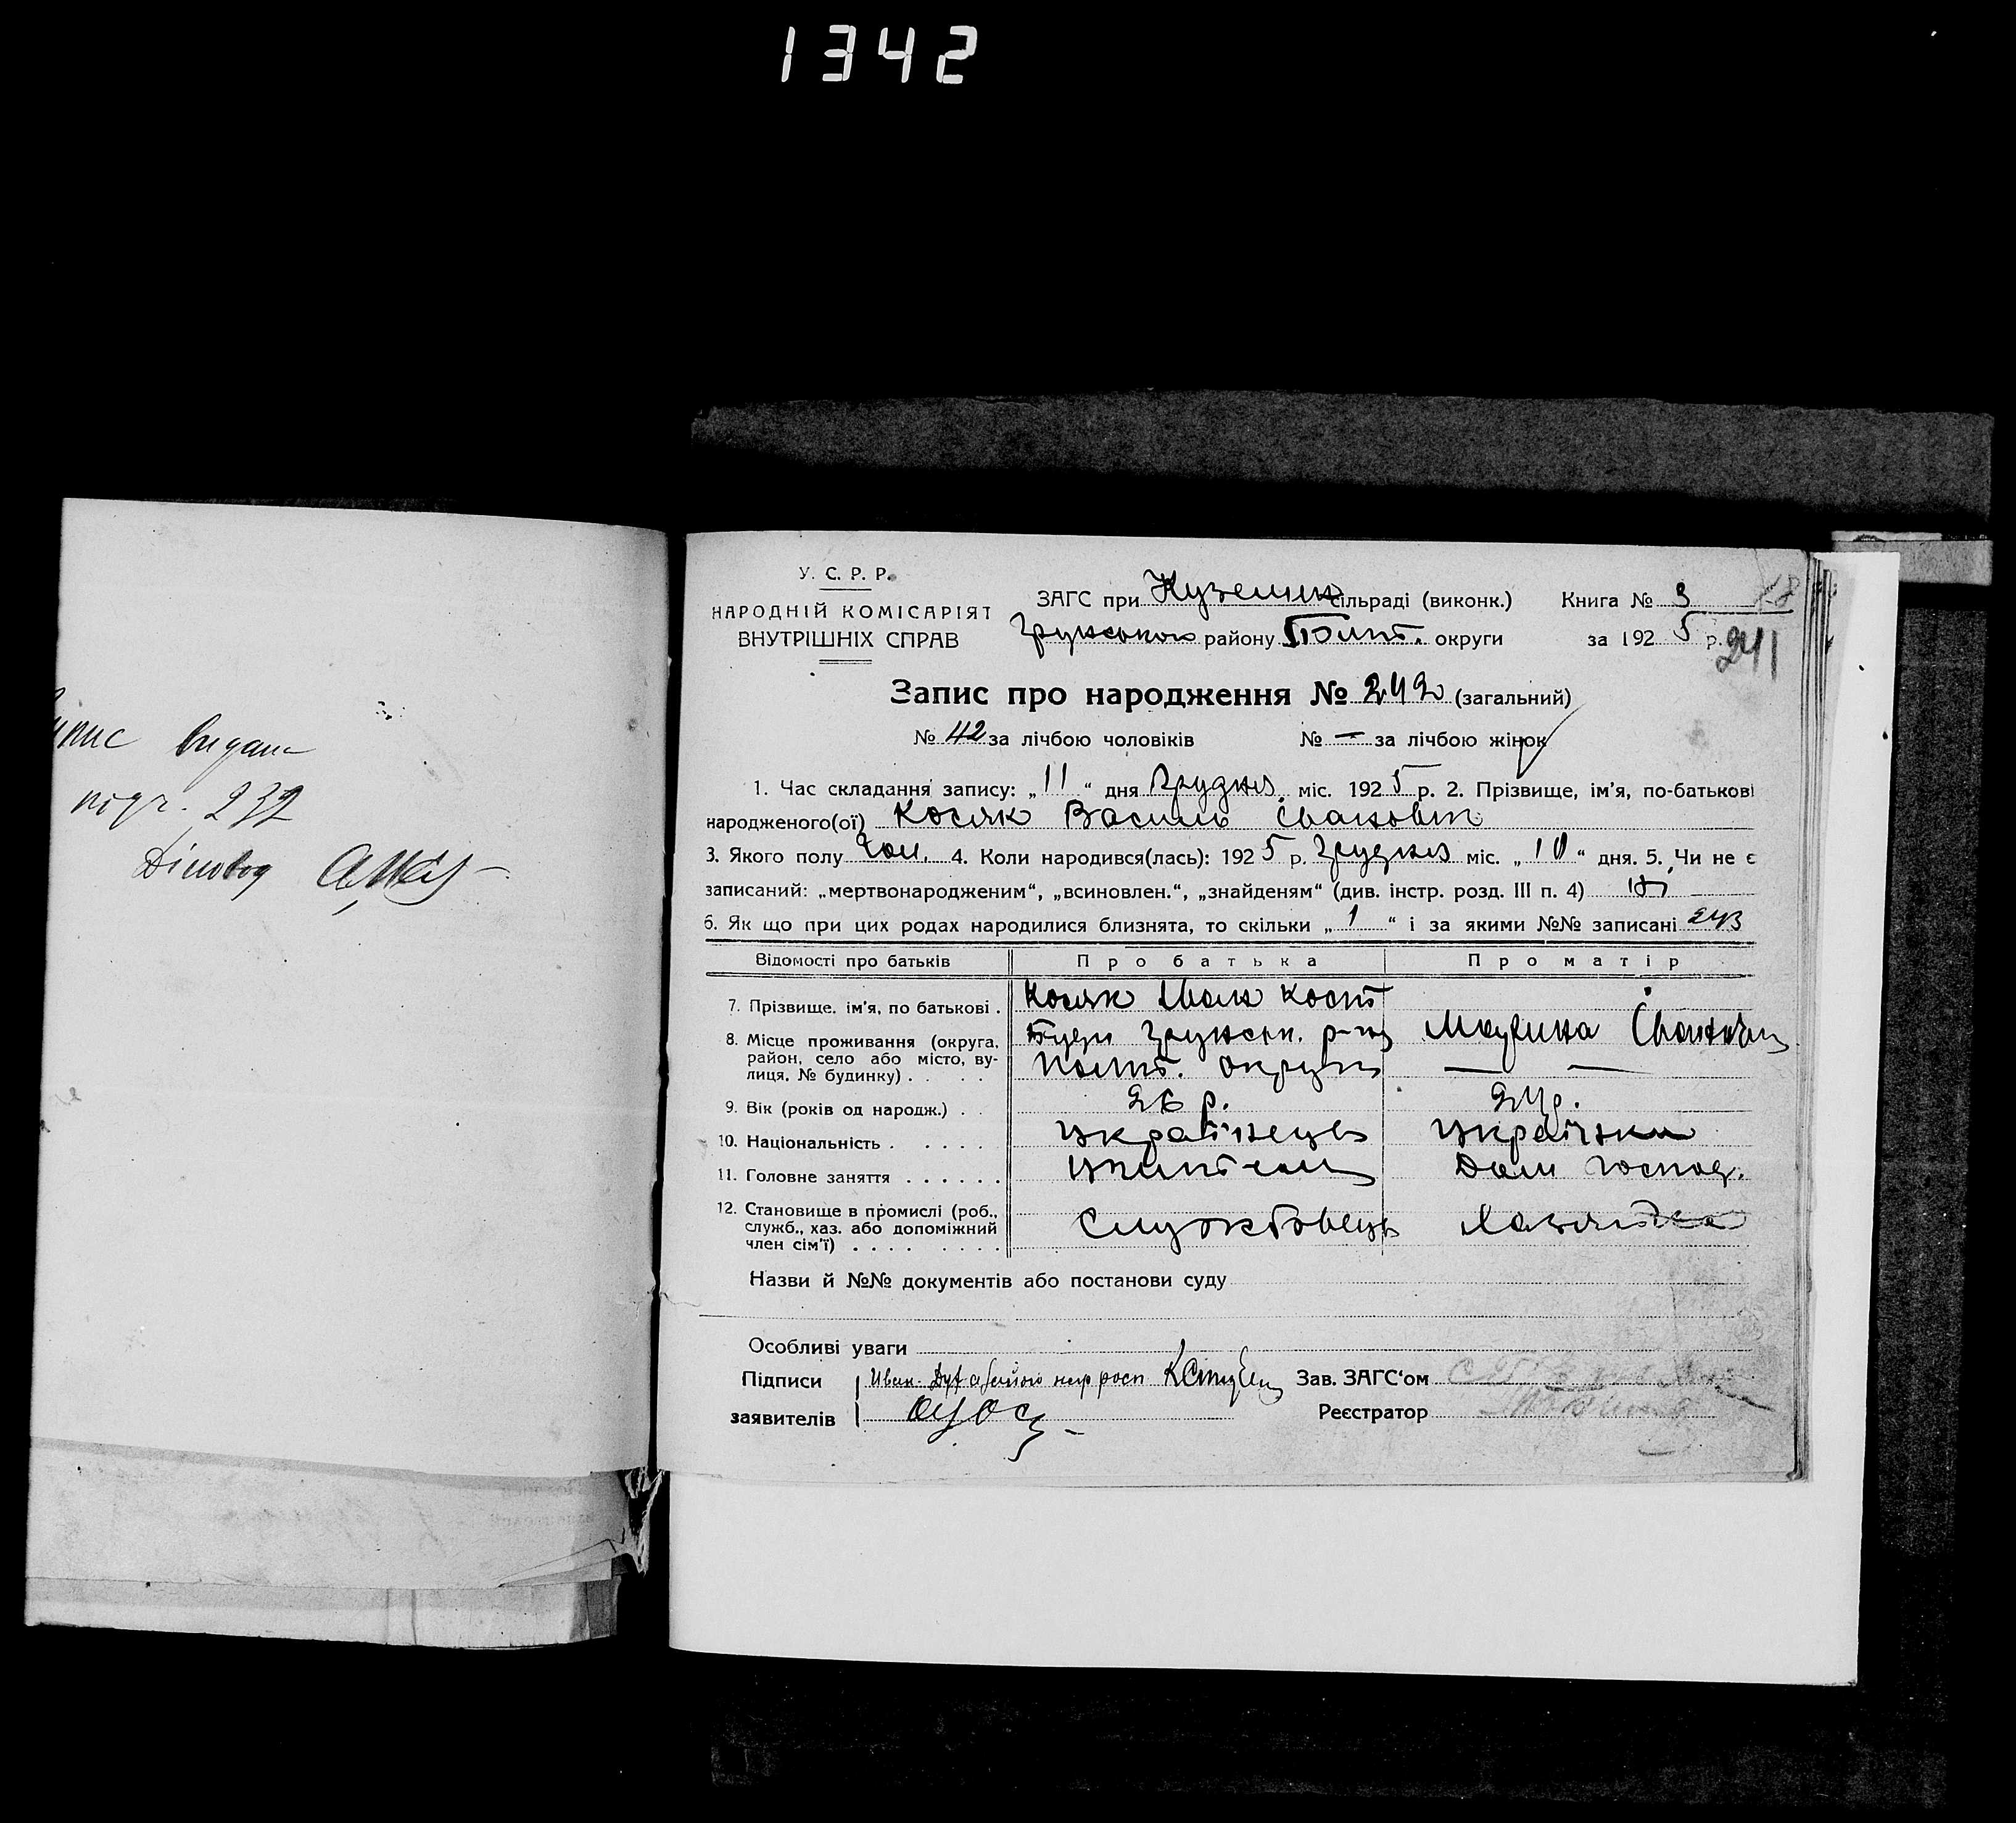 1342
видано
подг. 232
Діловод
У. С. Р. Р.
НАРОДНІЙ КОМІСАРІЯТ
ВНУТРІШНІХ СПРАВ
ЗАГС при Куземин сільраді (виконк.)
Грунського району Полт. округи
Книга № 3 18
за 1925 р.
241
Запис про народження № 242 (загальний)
№ 42 за лічбою чоловіків № — за лічбою жінок
1. Час складання запису: „11“ дня Грудня міс. 1925 р. 2. Прізвище, ім'я, по-батькові
народженого(ої) Косяк Василь Іванович
3. Якого полу Чол. 4. Коли народився(лась): 1925 р. Грудня міс. „10“ дня. 5. Чи не є
записаний: „мертвонародженим“, „всиновлен.“, „знайденям“ (див. інстр. розд. III п. 4) ні
6. Як що при цих родах народилися близнята, то скільки „1“ і за якими №№ записані 243
Відомості про батьків Про батька Про матір
7. Прізвище, ім'я, по батькові . Косяк Иван Кост
8. Місце проживання (округа, район, село або місто, вулиця, № будинку) . . . . Грунськ. р-ну Полт. округи
Іванівна
— —
9. Вік (років од народж.) . . 26 р. 24 р.
10. Національність . . . . . Українець Українка
11. Головне заняття . . . . . . Учитель Дом господ.
12. Становище в промислі (роб., служб., хаз. або допоміжний член сім'ї) . . . . . . . . Службовець Хазяйка
Назви й №№ документів або постанови суду
Особливі уваги
Підписи
заявителів
Зав. ЗАГС'ом
Реєстратор